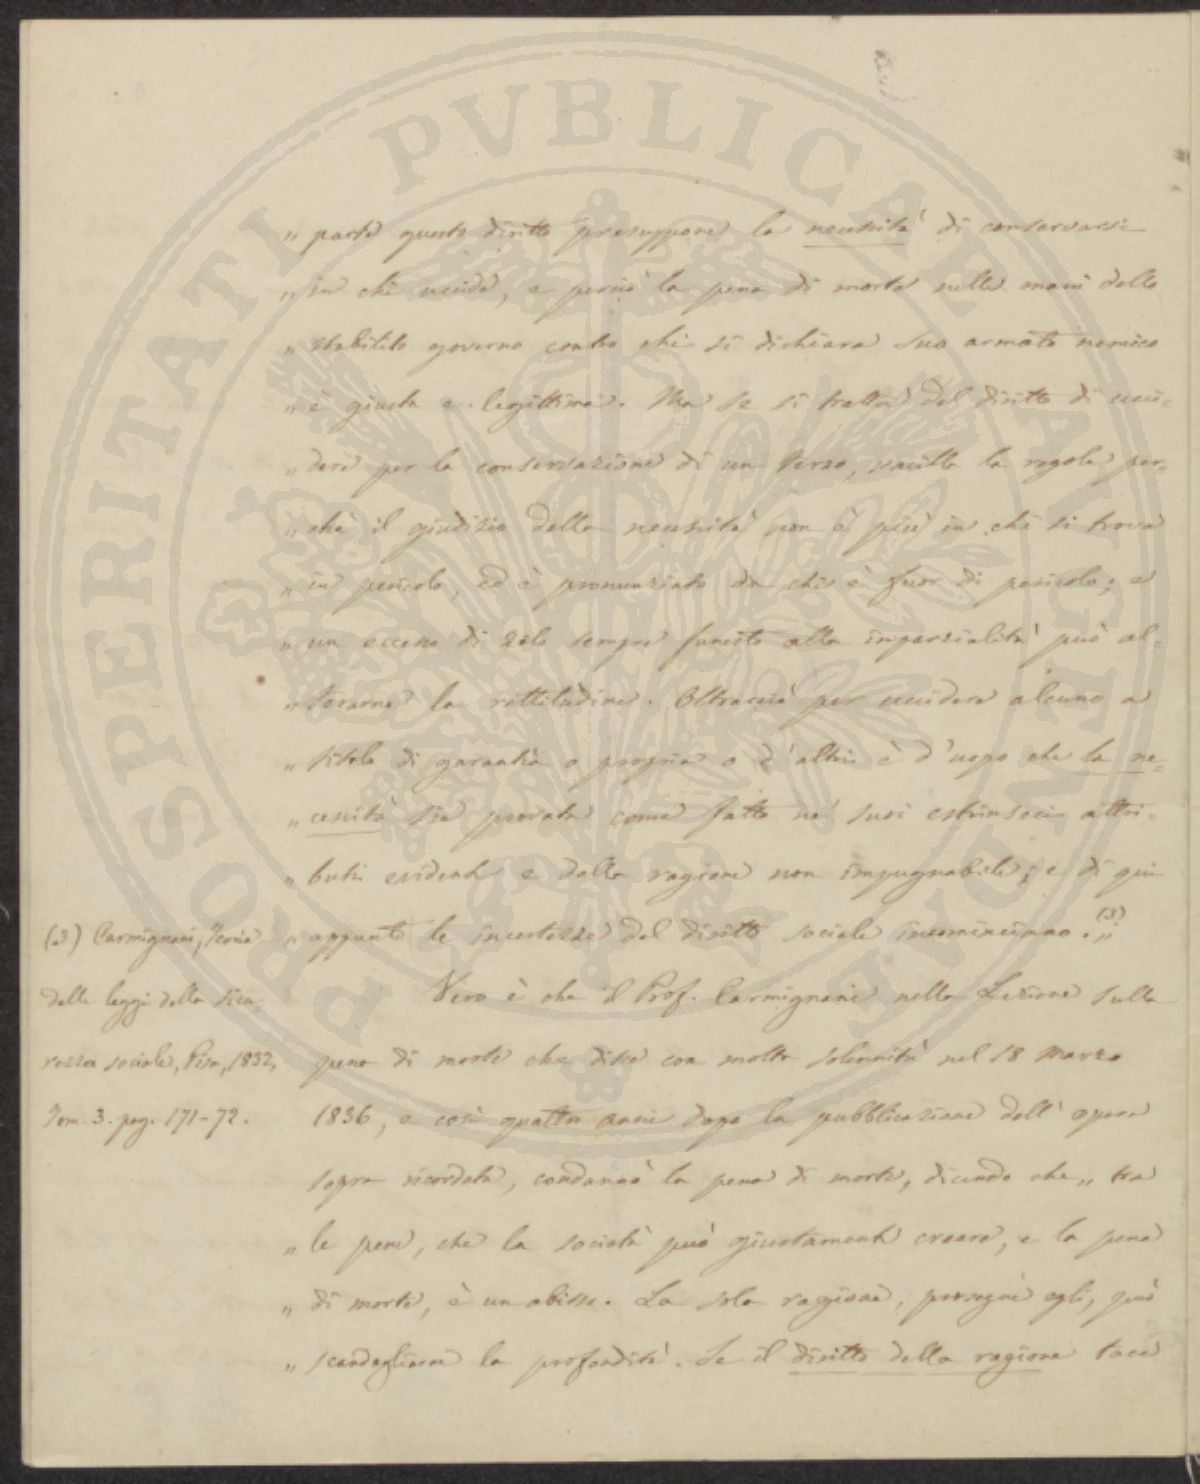 „ parte questo diritto presuppone la necessità di conservarsi
„ in chi uccide, e perciò la pena di morte nelle mani dello
„ stabilito governo contro chi si dichiara suo armato nemico
„ è giusta e legittima. Ma se si tratta del diritto di ucci=
„ dere per la conservazione di un terzo, vacilla la regola per=
„ chè il giudizio della necessità non è più in chi si trova
„ in pericolo, ed è pronunziato da chi è fuor di pericolo; e
„ un eccesso di zelo sempre funesto alla imparzialità può al-
„ terarne la rettitudine. Oltracciò per uccidere alcuno a
„ titolo di garantia o propria o d'altri è d'uopo che la ne=
„ cessità sia provata come fatto ne' suoi estrinseci attri-
„ buti evidenti e dalla ragione non impugnabile; e di qui
„ appunto le incertezze del diritto sociale incominciano.„ (3)
(3) Carmignani, Teoria
delle leggi della sicu-
rezza sociale, Pisa, 1832,
Tom. 3. pag. 171-72.
Vero è che il Prof. Carmignani nella Lezione sulla
pena di morte che disse con molta solennità nel 18 Marzo
1836, e così quattro anni dopo la pubblicazione dell'opera
sopra ricordata, condannò la pena di morte, dicendo che „ tra
„ le pene, che la società può giustamente creare, e la pena
„ di morte, è un abisso. La sola ragione, prosegue egli, può
„ scandagliarne la profondità. Se il diritto della ragione tace
PROSPERITATI PVBLICAE AVGENDAE